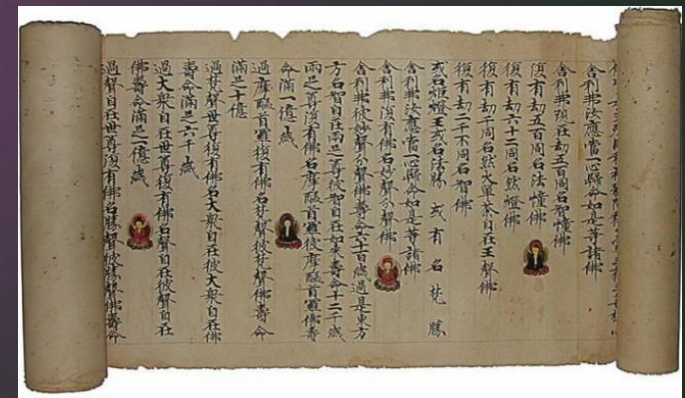 舍利弗汝應當一心歸命如是等諸佛
舍利弗現在劫五百同名智幢佛
復有劫五百同名法幢佛
復有劫六十二同名然燈佛
復有劫千同名然火單荼自在王聲佛
復有劫二千不同名智佛
或名燈王或名法勝 或有名梵勝
舍利弗汝應當一心歸命如是等諸佛
舍利弗復有佛名妙聲分聲佛
舍利弗彼妙聲分聲佛壽命六十百歲過是東方
方名智自在兩足尊彼智自在如來壽命十二千歲
兩足尊復有佛名摩醯首羅彼摩醯首羅佛壽
命滿一億歲
過摩醯首羅復有佛名梵聲彼梵聲佛壽命
滿足十億
過梵聲世尊復有佛名大衆自在彼大衆自在佛
壽命滿足六千歲
過大衆自在世尊復有佛名聲自在彼聲自在
佛壽命滿足一億歲
過聲自在世尊復有佛名勝聲彼勝聲佛壽命